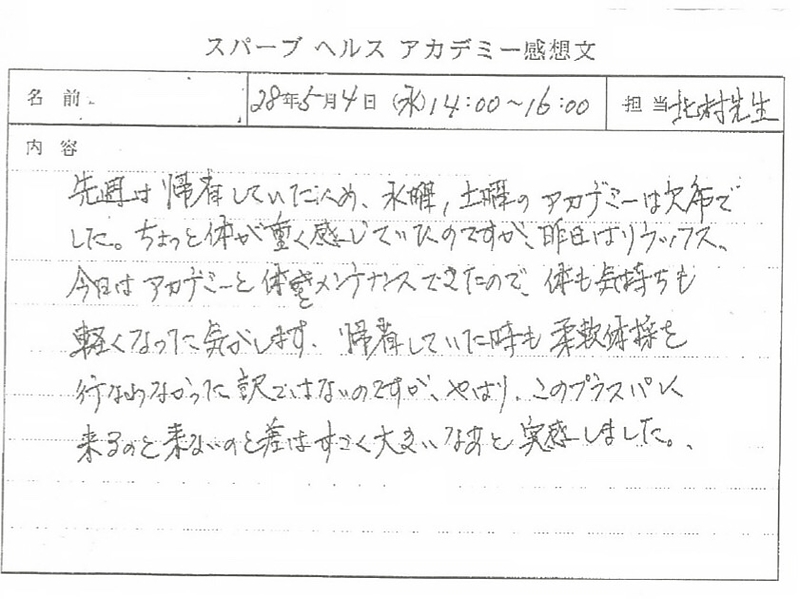 スパーブ ヘルス アカデミー感想文
名 前
28年5月4日 (水) 14:00～16:00
担 当 北村先生
内 容
先週は帰省していたため、水曜,土曜のアカデミーは欠席で
した。ちょっと体が重く感じていたのですが、昨日はリラックス、
今日はアカデミーと体をメンテナンスできたので、体も気持ちも
軽くなった気がします。帰省していた時も柔軟体操を
行なわなかった訳ではないのですが、やはり、このプラスパに
来るのと来ないのと差はすごく大きいなあと実感しました。